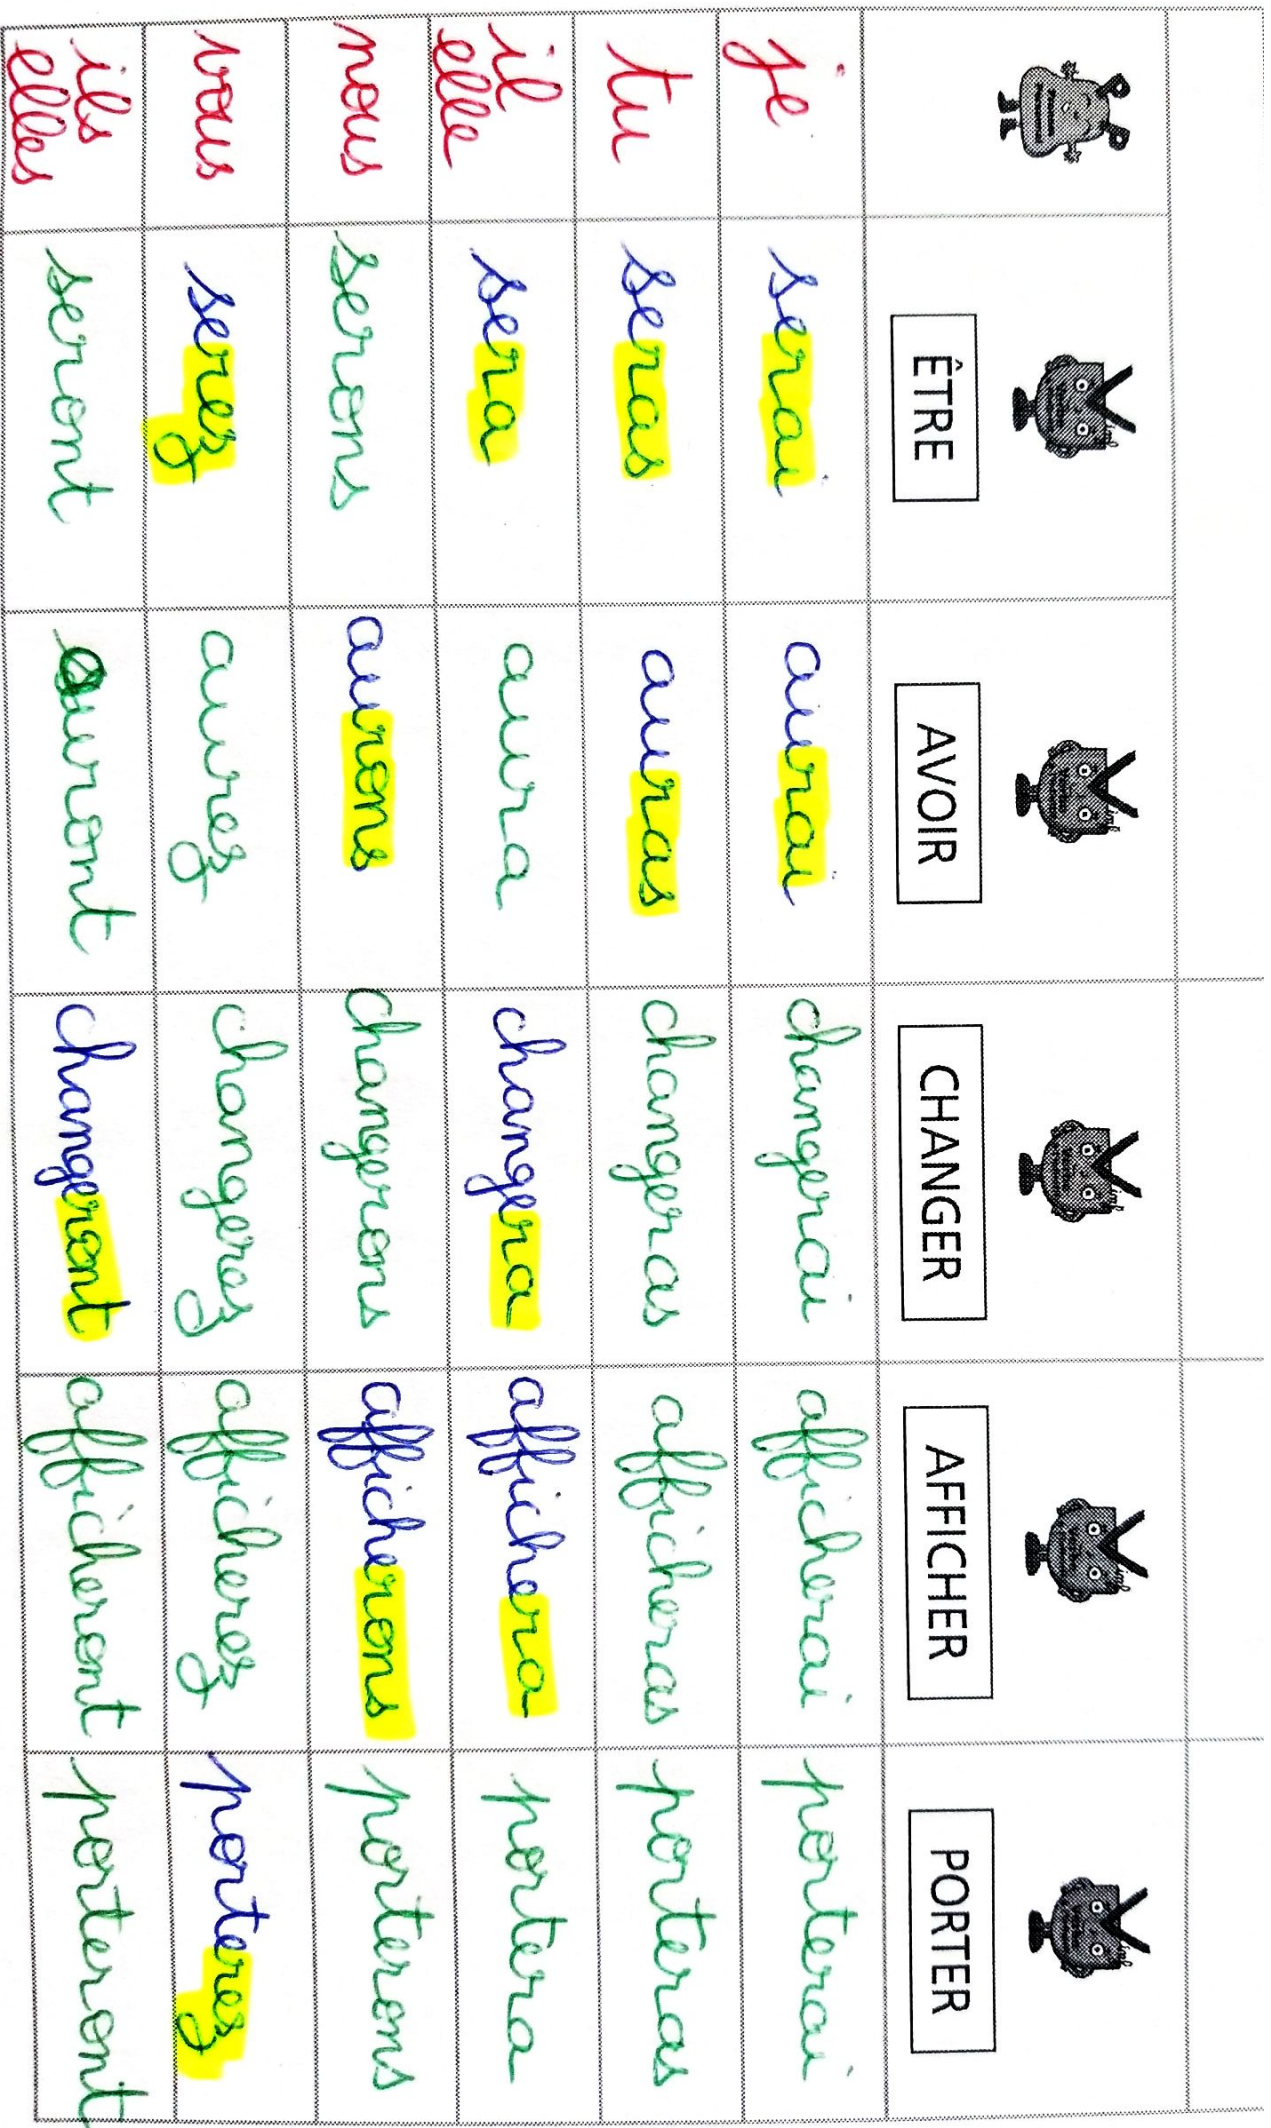 ÊTRE AVOIR CHANGER AFFICHER PORTER
je serai aurai changerai afficherai porterai
tu seras auras changeras afficheras porteras
il elle sera aura changera affichera portera
nous serons aurons changerons afficherons porterons
vous serez aurez changerez afficherez porterez
ils elles seront auront changeront afficheront porteront